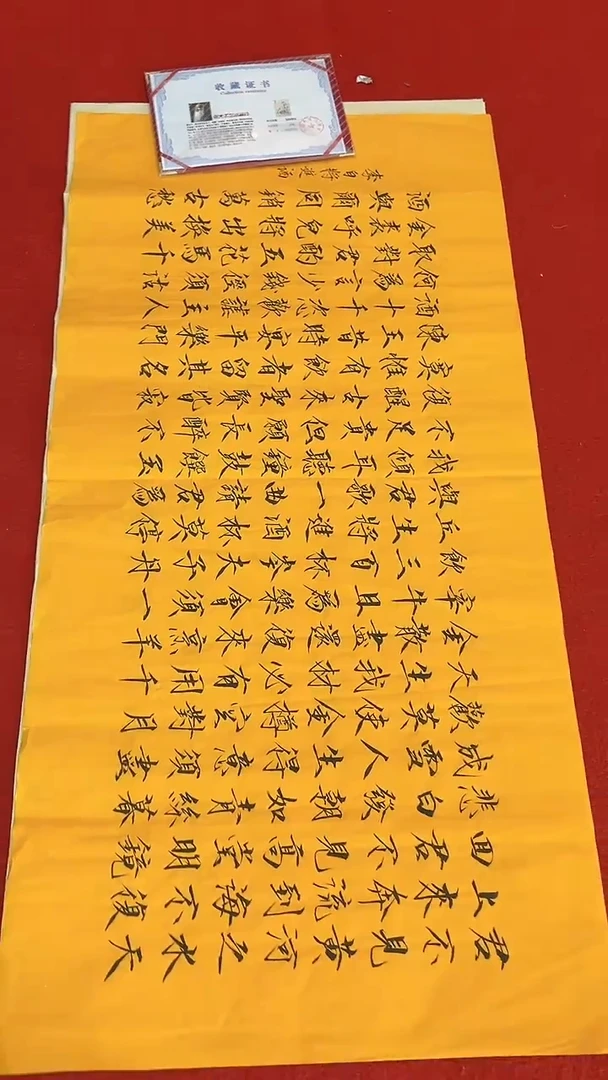 君不見黄河之水天
上來奔流到海不復
回君不見高堂明鏡
悲白發朝如青絲暮
成雪人生得意須盡
歡莫使金樽空對月
天生我材必有用千
金散盡還復來烹羊
宰牛且為樂會須一
飲三百杯岑夫子丹
丘生將進酒杯莫停
與君歌一曲請君為
我傾耳聽鐘鼓饌玉
不足貴但願長醉不
復醒古來聖賢皆寂
寞惟有飲者留其名
陳王昔時宴平樂鬥
酒十千恣歡謔主人
何為言少錢徑須沽
取對君酌五花馬千
金裘呼兒將出換美
酒與爾同銷萬古愁
李白將進酒
收藏证书